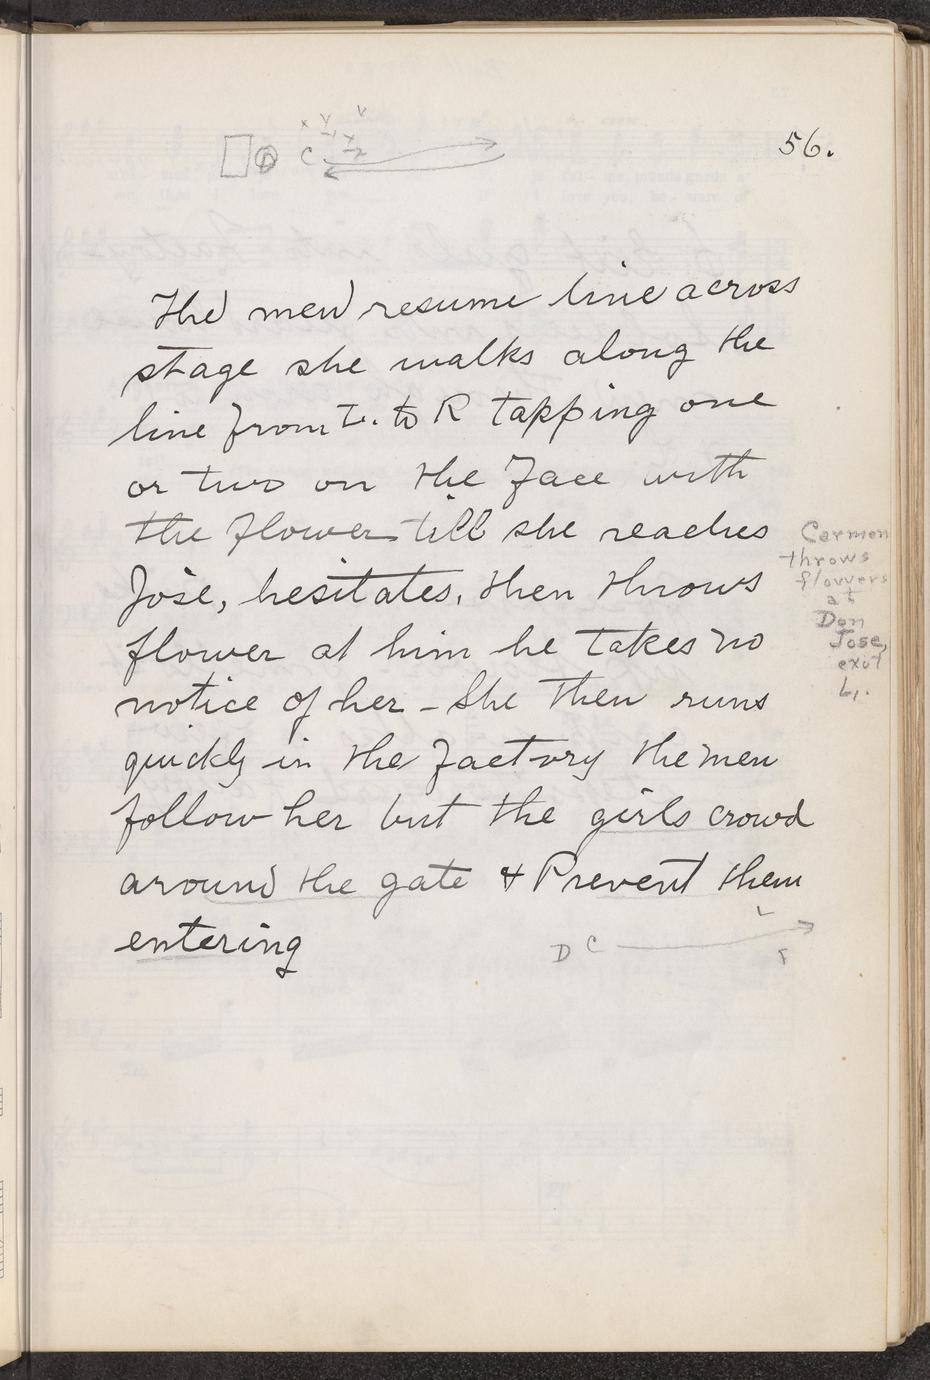 56.
C
The men resume line across
stage she walks along the
line from L. to R tapping one
or two on the face with
the flower till she reaches
José, hesitates, then throws
flower at him he takes no
notice of her - She then runs
quickly in the factory the men
follow her but the girls crowd
around the gate & Prevent them
entering
Carmen
throws
flowers
at
Don
Jose,
exit
L.
D C